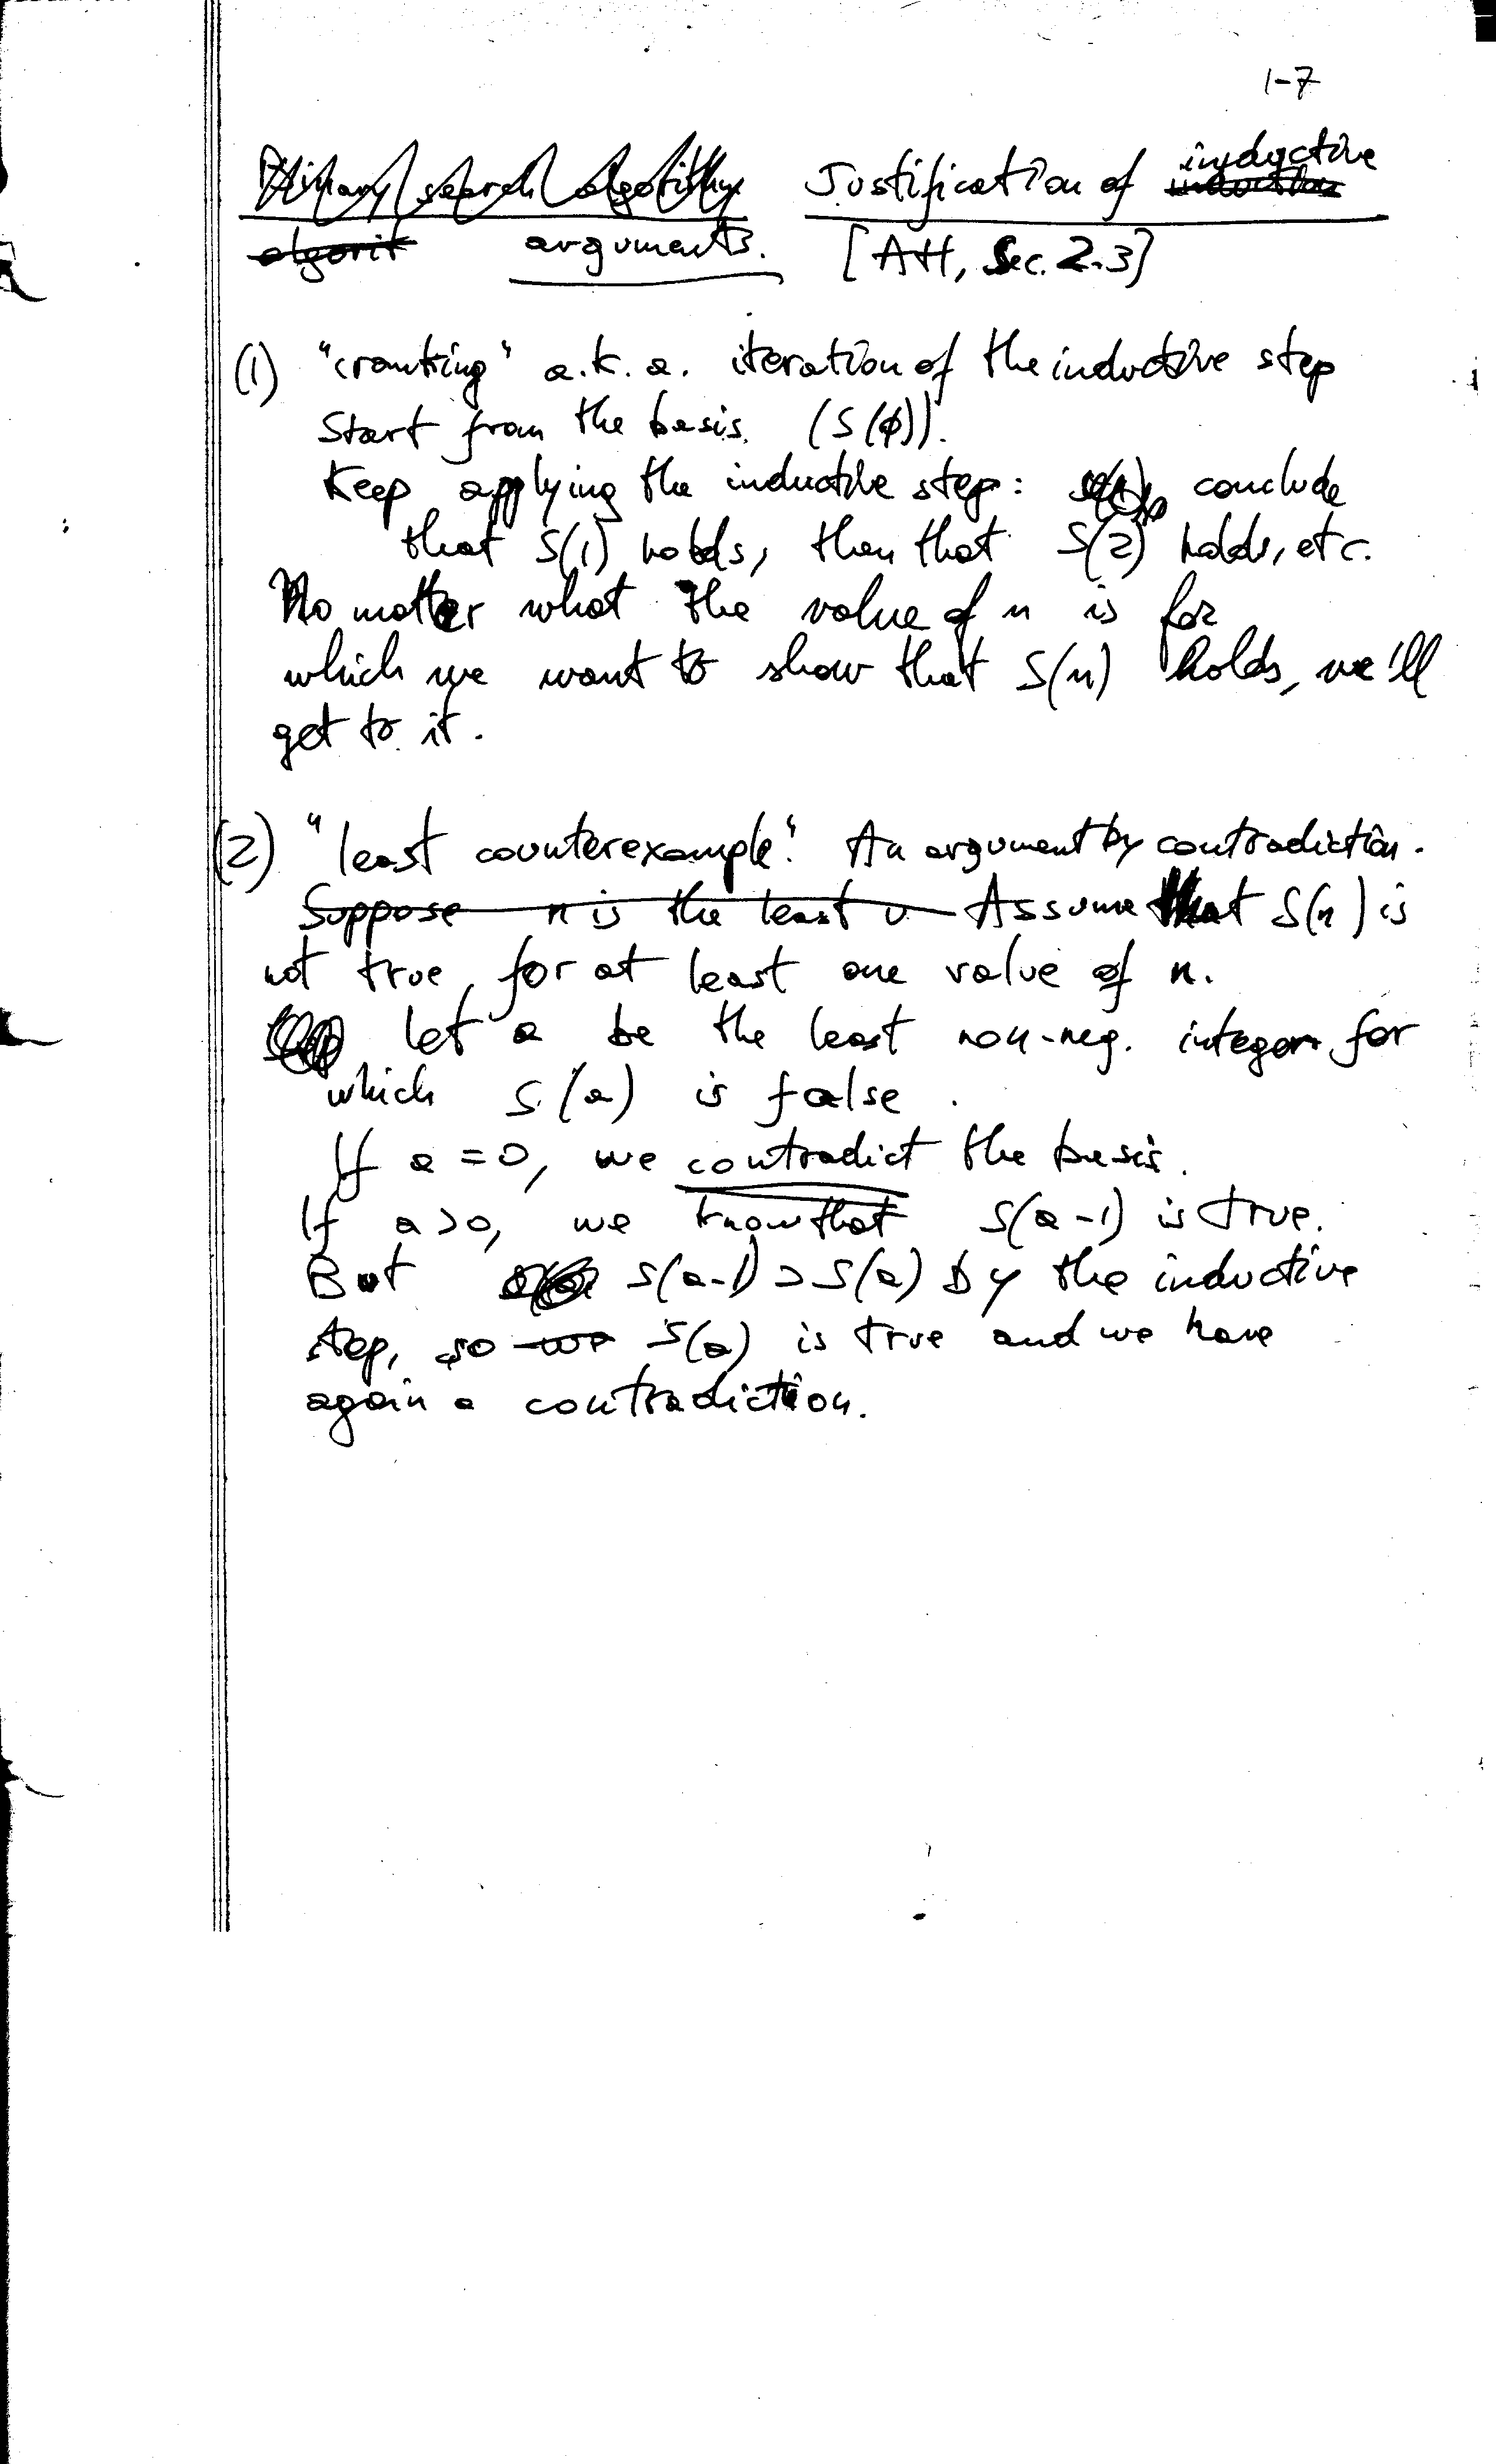 1-7
Binary search algorithm Justification of inductive
algorit arguments. [AH, Sec. 2.3]
(1) "cranking" a.k.a. iteration of the inductive step
Start from the basis. (S(0)).
Keep applying the inductive step: conclude
that S(1) holds, then that S(2) holds, etc.
No matter what the value of n is for
which we want to show that S(n) holds, we'll
get to it.
(2) "least counterexample". An argument by contradiction.
Suppose n is the least v Assume that S(n) is
not true, for at least one value of n.
let a be the least non-neg. integer for
which S(a) is false.
If a = 0, we contradict the basis.
If a > 0, we know that S(a-1) is true.
But S(a-1) ⊃ S(a) by the inductive
step, so we S(a) is true and we have
again a contradiction.